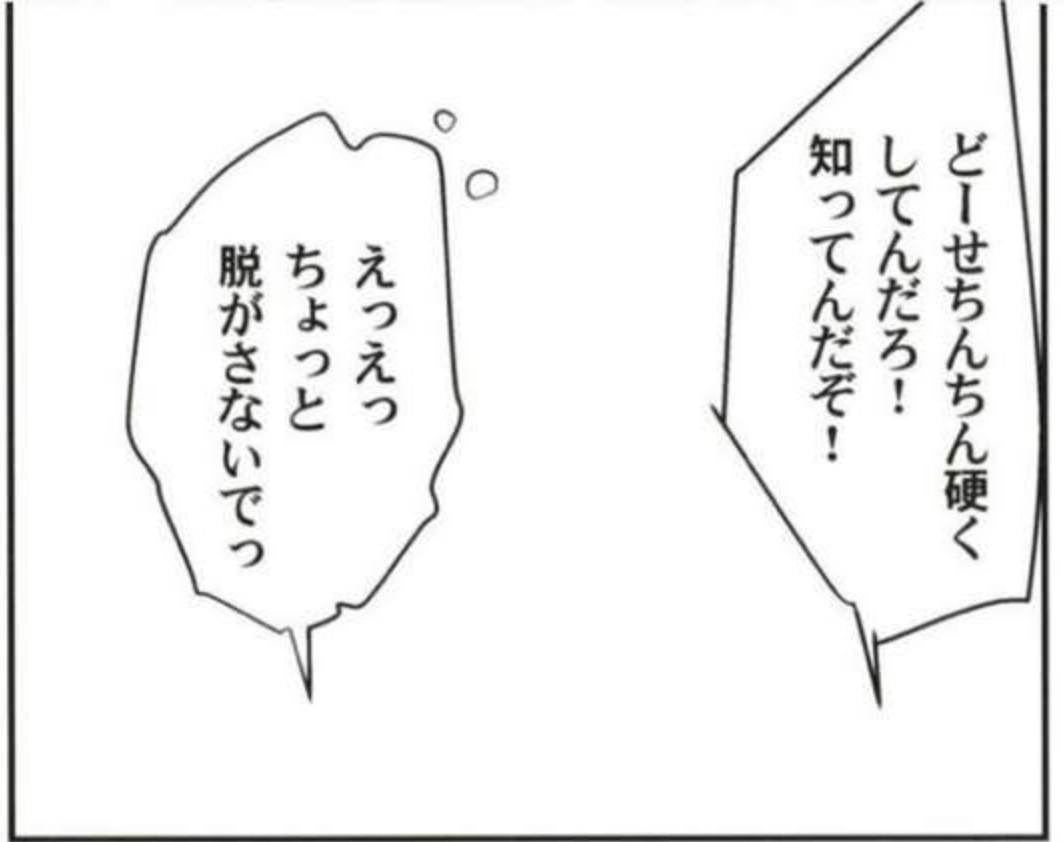 どーせちんちん硬く
してんだろ！
知ってんだぞ！
えっえっ
ちょっと
脱がさないでっ